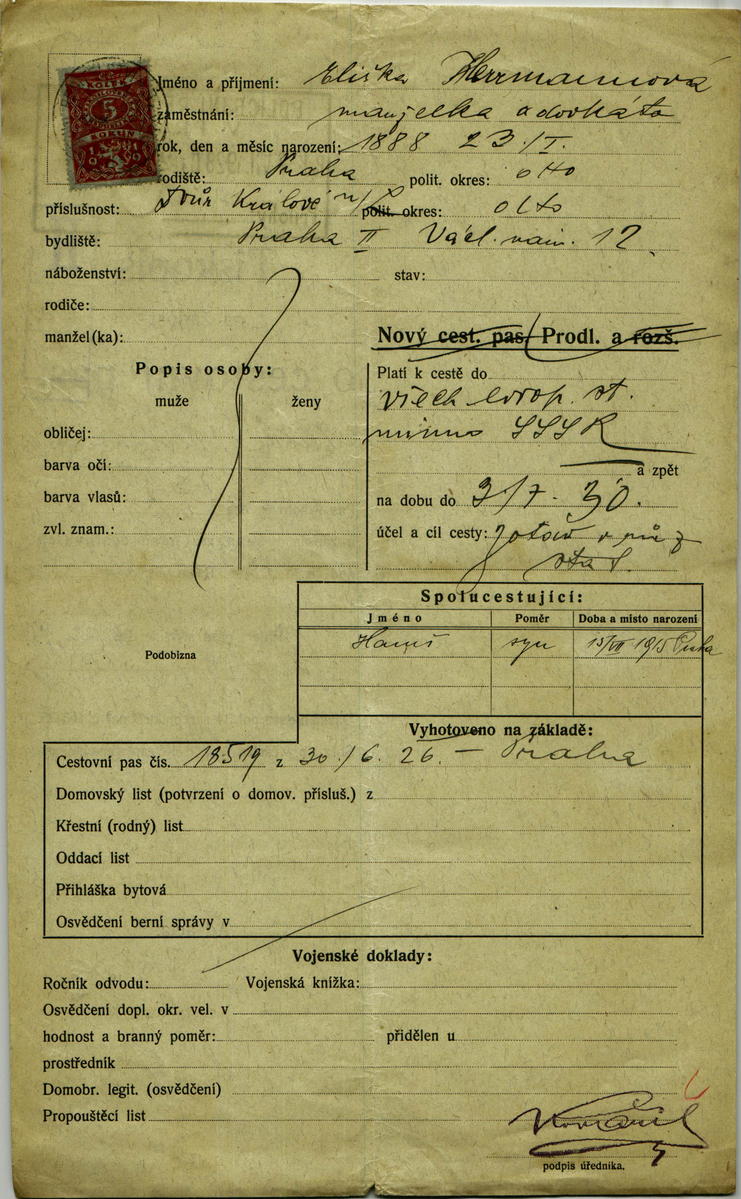 KOLEK
5
KORUN
Jméno a příjmení: Eliška Herrmannová
zaměstnání: manželka advokáta
rok, den a měsíc narození: 1888 23/I.
rodiště: Praha polit. okres: otto
příslušnost: Dvůr Králové n/L polit. okres: otto
bydliště: Praha II Václ. nám. 12
náboženství: stav:
rodiče:
manžel(ka):
Nový cest. pas. Prodl. a rozš.
Popis osoby:
muže ženy
obličej:
barva očí:
barva vlasů:
zvl. znam.:
Platí k cestě do
všech evrop. st.
mimo SSSR
a zpět
na dobu do 3/7. 30.
účel a cíl cesty:
Spolucestující:
Jméno Poměr Doba a místo narození
Hanuš syn 15/VII 1915 Praha
Podobizna
Vyhotoveno na základě:
Cestovní pas čís. 18519 z 30./6. 26. – Praha
Domovský list (potvrzení o domov. přísluš.) z
Křestní (rodný) list
Oddací list
Přihláška bytová
Osvědčení berní správy v
Vojenské doklady:
Ročník odvodu: Vojenská knížka:
Osvědčení dopl. okr. vel. v
hodnost a branný poměr: přidělen u
prostředník
Domobr. legit. (osvědčení)
Propouštěcí list
podpis úředníka.